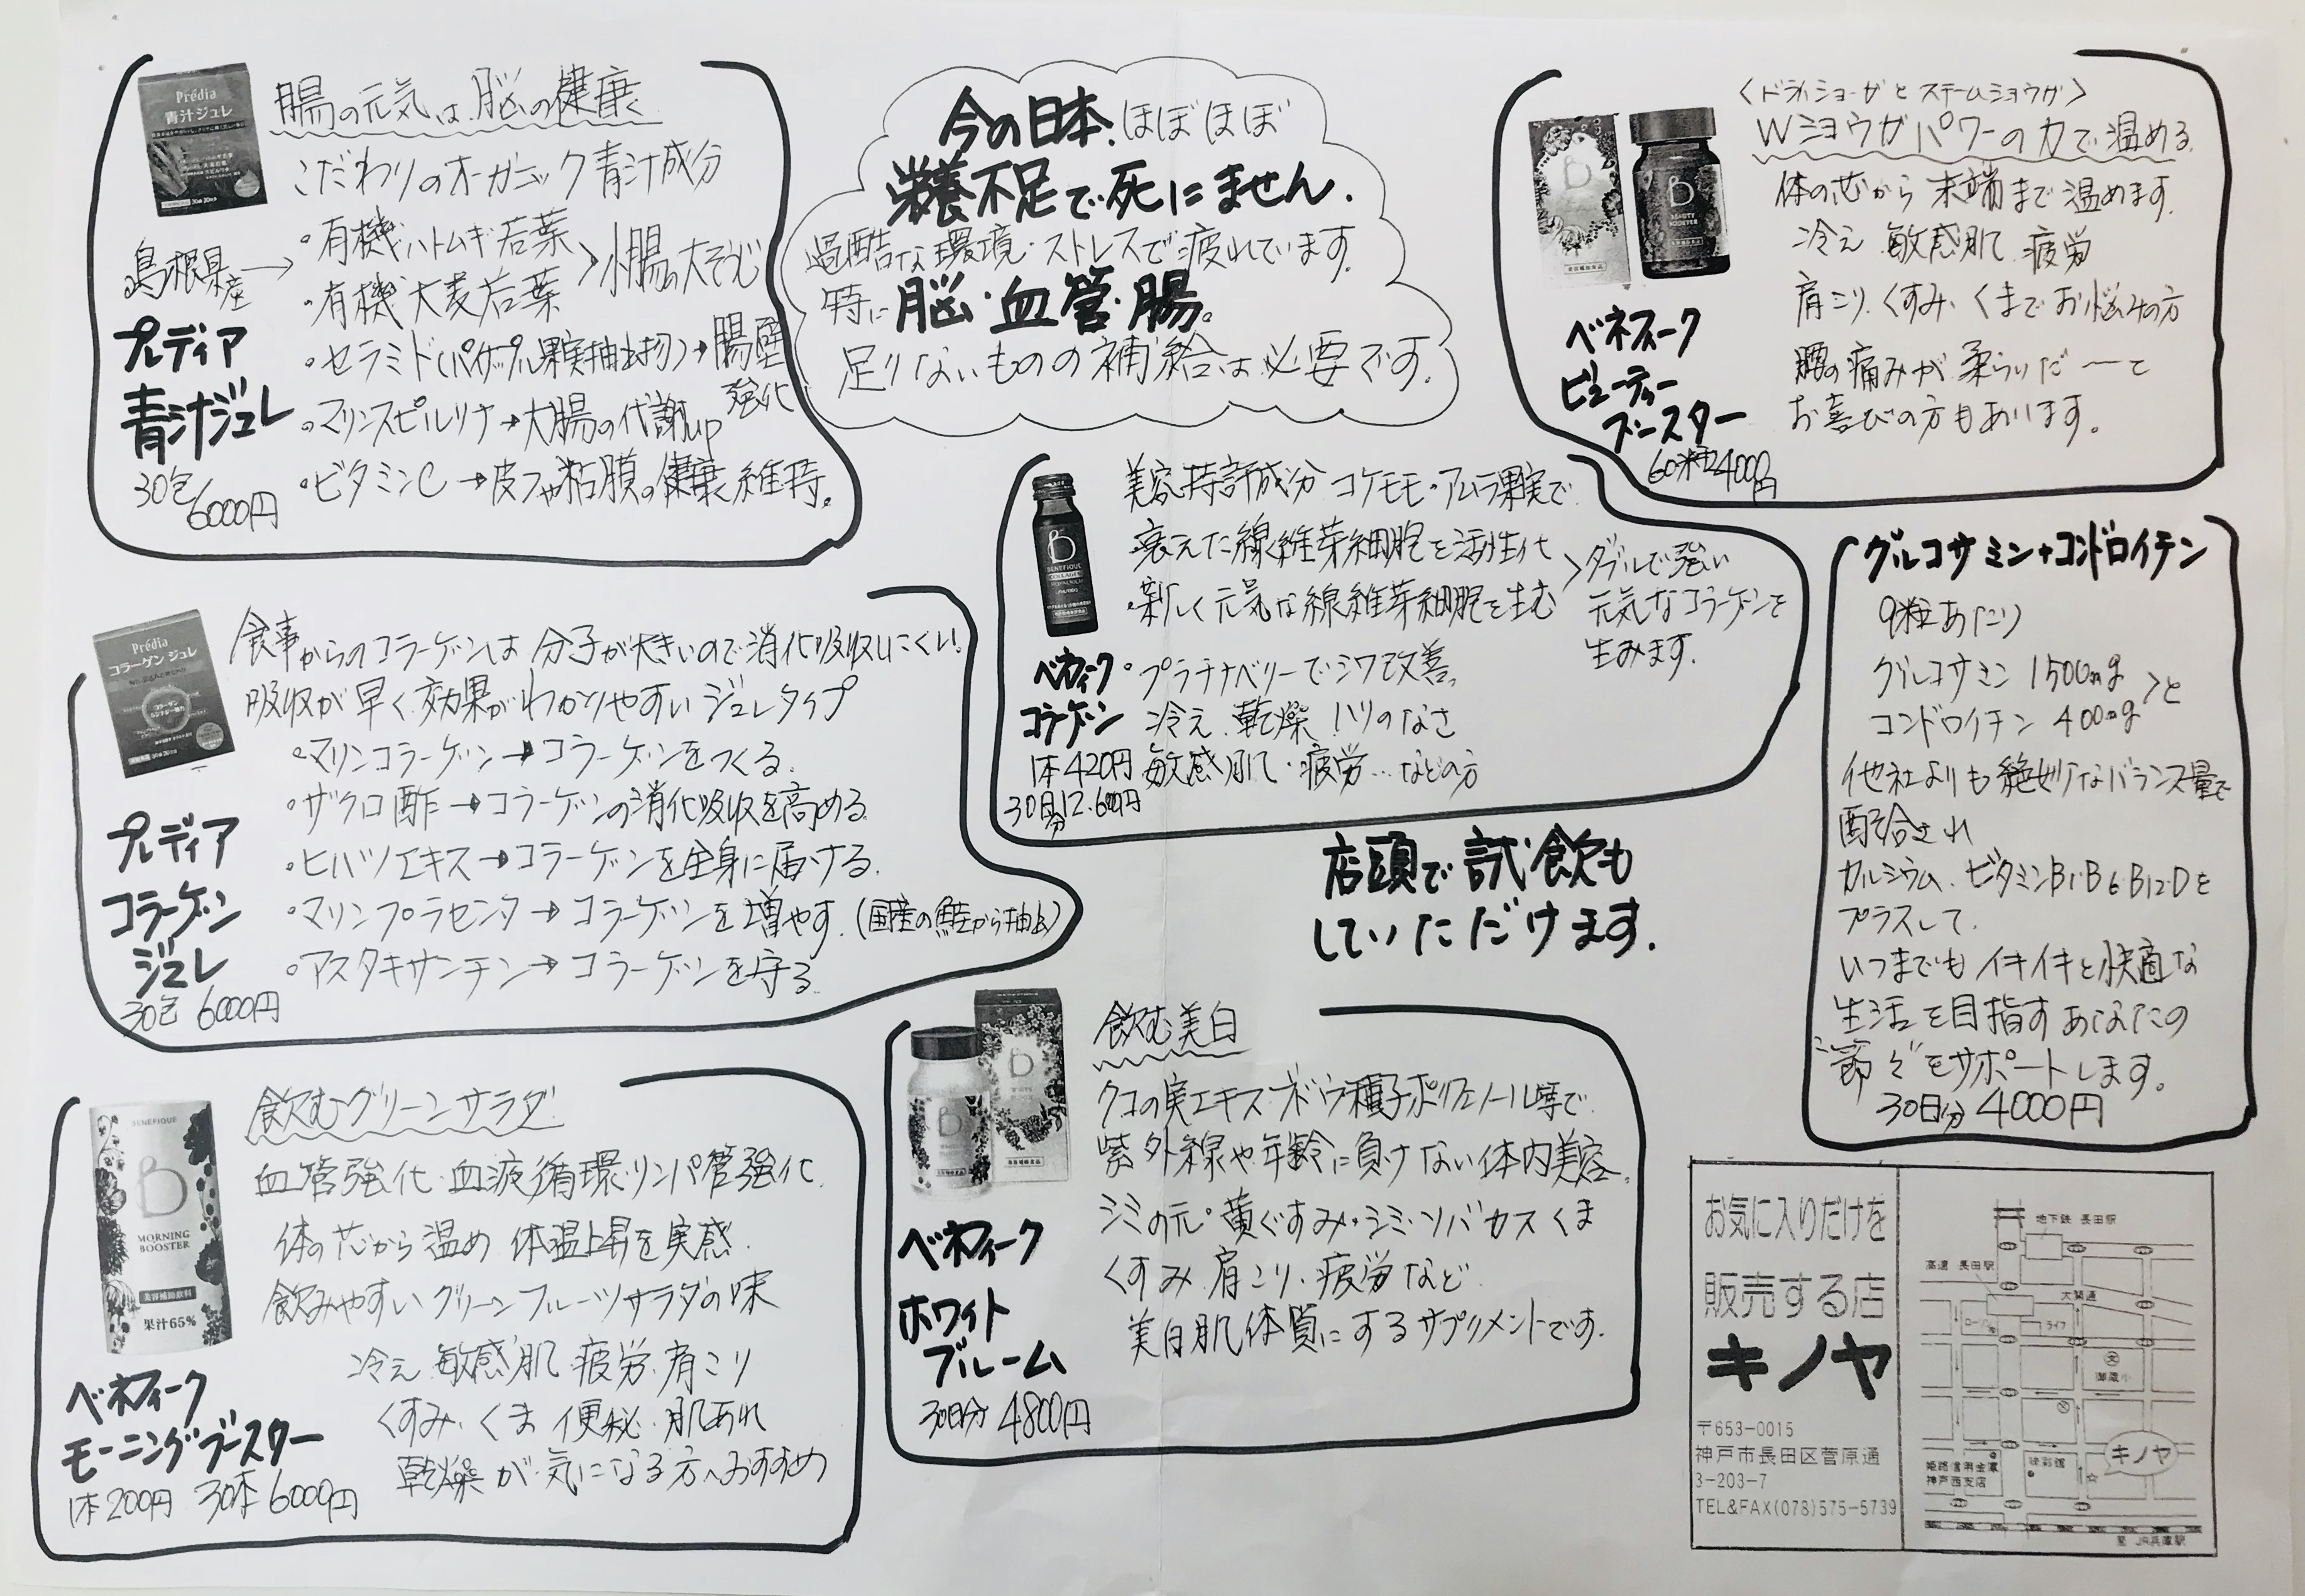 Prédia
青汁ジュレ
腸の元気は、脳の健康
こだわりのオーガニック青汁成分
島根県産→
・有機ハトムギ若葉
・有機大麦若葉
>小腸の大そうじ
・セラミド(パイナップル果実抽出物)→腸壁強化
・マリンスピルリナ→大腸の代謝up
・ビタミンC→皮フや粘膜の健康維持。
プレディア
青汁ジュレ
30包/6000円
今の日本、ほぼほぼ
栄養不足で死にません.
過酷な環境・ストレスで疲れています.
特に脳・血管・腸。
足りないものの補給は必要です.
<ドライショーガとスチームショウガ>
Wショウガパワーの力で温める.
体の芯から末端まで温めます.
冷え 敏感肌 疲労
肩こり.くすみ.くまでお悩みの方
腰の痛みが柔らいだ〜と
お喜びの方もあります。
B
BEAUTY
BOOSTER
ベネフィーク
ビューティー
ブースター
60粒4000円
美容特許成分 コケモモ・アムラ果実で
衰えた線維芽細胞を活性化
・新しく元気な線維芽細胞を生む
>ダブルで強い
元気なコラーゲンを
生みます.
・プラチナベリーでシワ改善。
冷え、乾燥 ハリのなさ
敏感肌・疲労…などの方
BENEFIQUE
COLLAGEN
ベネフィーク
コラーゲン
1本420円
30日分12.600円
グルコサミン+コンドロイチン
9粒あたり
グルコサミン 1500mg
コンドロイチン 400mg
>と
他社よりも絶妙なバランス量で
配合され
カルシウム、ビタミンB1・B6・B12・Dを
プラスして.
いつまでもイキイキと快適な
生活を目指すあなたの
"節々"をサポートします.
30日分 4000円
Prédia
コラーゲン ジュレ
食事からのコラーゲンは分子が大きいので消化吸収しにくい!
吸収が早く効果がわかりやすいジュレタイプ
・マリンコラーゲン→コラーゲンをつくる.
・ザクロ酢→コラーゲンの消化吸収を高める.
・ヒハツエキス→コラーゲンを全身に届ける.
・マリンプラセンタ→コラーゲンを増やす.(国産の鮭から抽出)
・アスタキサンチン→コラーゲンを守る.
プレディア
コラーゲン
ジュレ
30包 6000円
店頭で試飲も
していただけます.
飲むグリーンサラダ
血管強化・血液循環・リンパ管強化
体の芯から温め 体温上昇を実感.
飲みやすいグリーンフルーツサラダの味
冷え 敏感肌 疲労・肩こり
くすみ・くま 便秘・肌あれ
乾燥が気になる方へおすすめ
BENEFIQUE
B
MORNING
BOOSTER
美容補助飲料
果汁65%
ベネフィーク
モーニングブースター
1本200円 30本6000円
飲む美白
クコの実エキス・ブドウ種子ポリフェノール等で
紫外線や年齢に負けない体内美容.
シミの元・黄ぐすみ・シミ・ソバカス くま
くすみ 肩こり・疲労など
美白肌体質にするサプリメントです.
ベネフィーク
ホワイト
ブルーム
30日分 4800円
お気に入りだけを
販売する店
キノヤ
〒653-0015
神戸市長田区菅原通
3-203-7
TEL&FAX(078)575-5739
地下鉄 長田駅
高速 長田駅
大開通
ライフ
御蔵小
キノヤ
姫路信用金庫
神戸西支店
至 JR兵庫駅